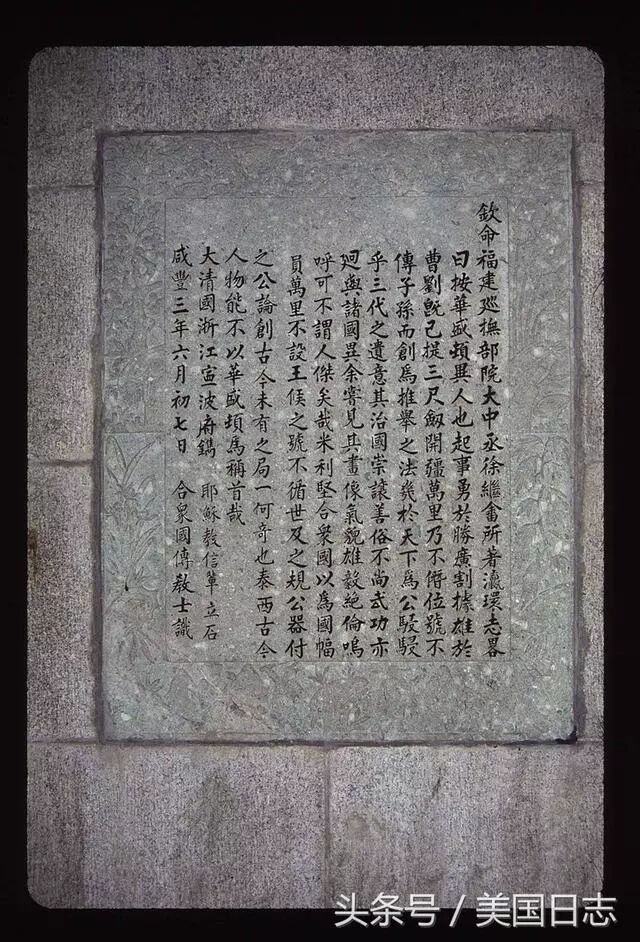 欽命福建巡撫部院大中丞徐繼畬所著瀛環志畧
曰按華盛頓異人也起事勇於勝廣割據雄於
曹劉旣已提三尺劒開疆萬里乃不僭位號不
傳子孫而創爲推舉之法幾於天下爲公駸駸
乎三代之遺意其治國崇讓善俗不尚武功亦
迥與諸國異余嘗見其畫像氣貌雄毅絕倫嗚
呼可不謂人傑矣哉米利堅合衆國以爲國幅
員萬里不設王侯之號不循世及之規公器付
之公論創古今未有之局一何奇也泰西古今
人物能不以華盛頓爲稱首哉
大清國浙江寧波府鐫 耶穌教信輩立石
咸豐三年六月初七日 合衆國傳教士識
头条号 / 美国日志